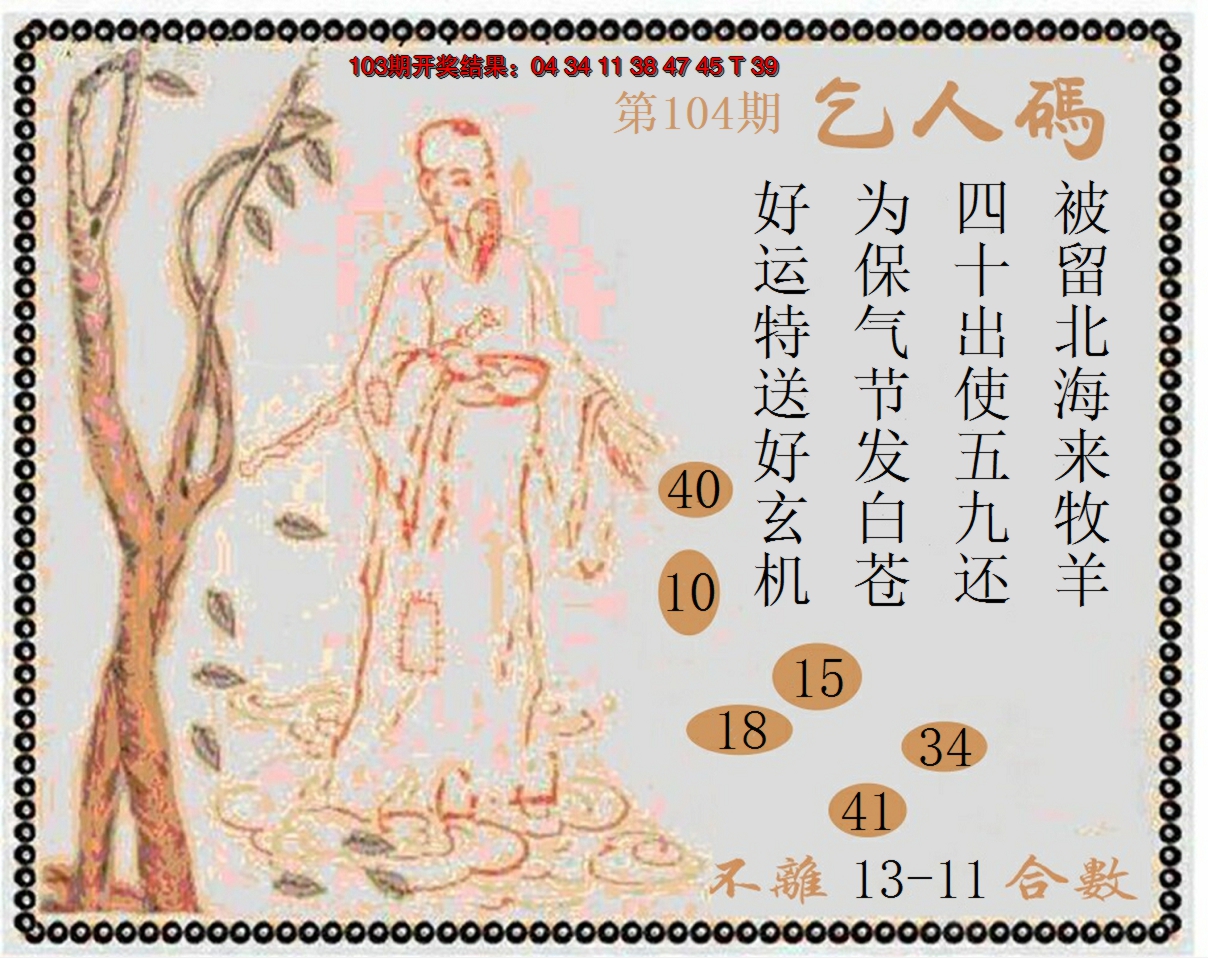 103期开奖结果：04 34 11 38 47 45 T 39
第104期 乞人碼
被留北海来牧羊
四十出使五九还
为保气节发白苍
好运特送好玄机
40
10
15
18
34
41
不離 13-11 合數